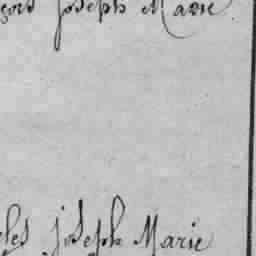 Joseph Marie
joseph Marie